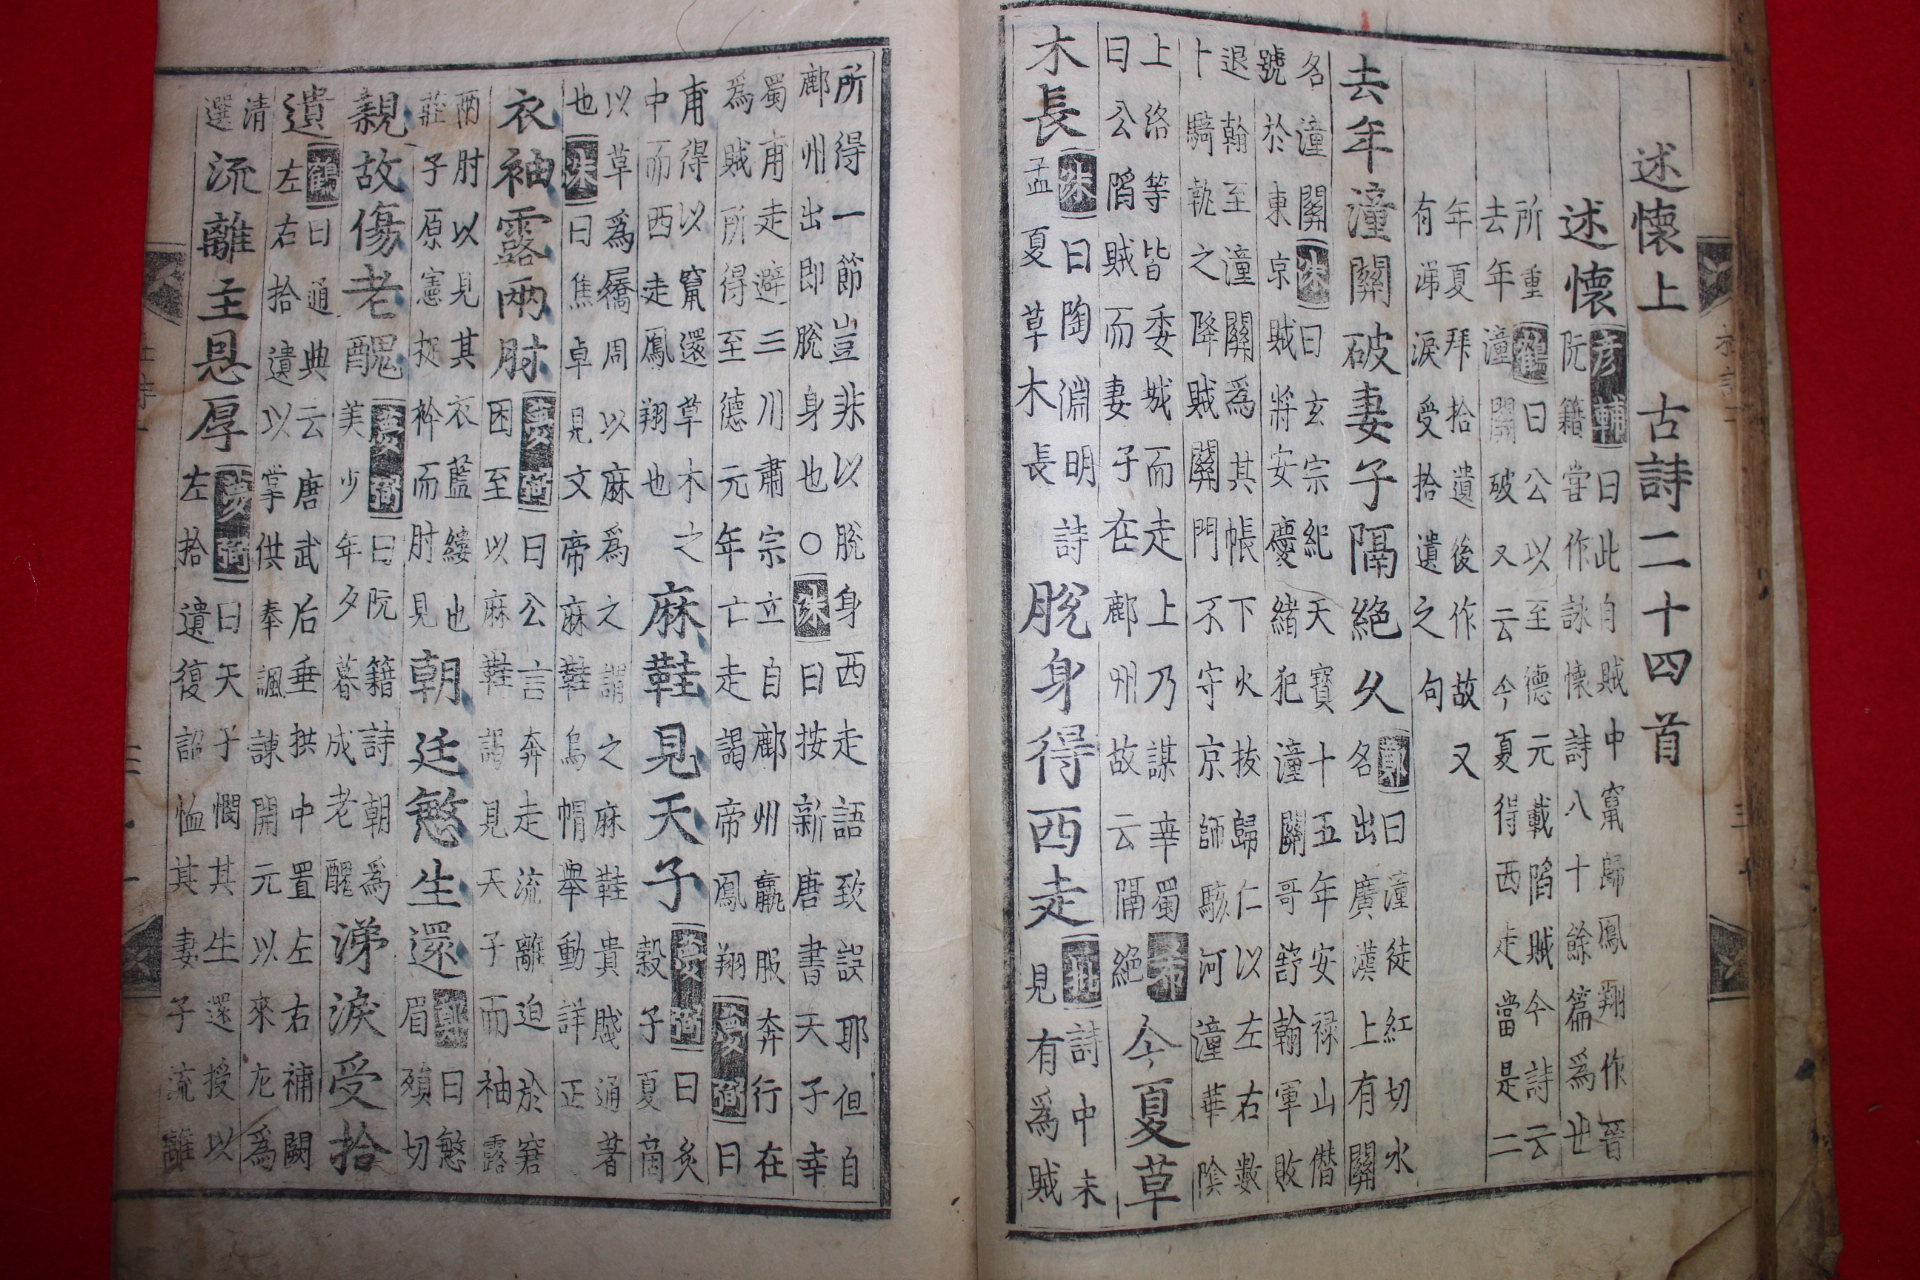 述懷上　古詩二十四首
述懷
彦輔曰此自賊中竄歸鳳翔作晉
阮籍嘗作詠懷詩八十餘篇爲世
所重鶴曰公以至德元載陷賊今詩云
去年潼關破又云今夏得西走當是二
年夏拜拾遺後作故又
有涕淚受拾遺之句
去年潼關破妻子隔絕久
鄭曰潼徒紅切水
名出廣漢上有關
名潼關洙曰玄宗紀天寶十五年安禄山僭
號於東京賊將安慶緒犯潼關哥舒翰軍敗
退翰至潼關爲其帳下火拔歸仁以左右數
卜騎執之降賊關門不守京師駭河潼華陰
上洛等皆委城而走上乃謀幸蜀希
曰公陷賊而妻子在鄜州故云隔絕
今夏草
木長
洙曰陶淵明詩
孟夏草木長
脫身得西走
詩中未
見有爲賊
所得一節豈非以脫身西走語致誤耶但自
鄜州出即脫身也○洙曰按新唐書天子幸
蜀甫走避三川肅宗立自鄜州羸服奔行在
爲賊所得至德元年亡走謁帝鳳翔夢弼曰
甫得以竄還草木之
中而西走鳳翔也
麻鞋見天子
夢弼曰炙
穀子夏商
以草爲屩周以麻爲之謂之麻鞋貴賤通著
也洙曰焦卓見文帝麻鞋烏帽舉動詳正
衣袖露兩肘
夢弼曰公言奔走流離迫於窘
困至以麻鞋謁見天子而袖露
兩肘以見其衣藍縷也
莊子原憲捉衿而肘見
朝廷慜生還
鄭曰慜
眉殞切
親故傷老醜
夢弼曰阮籍詩朝爲
美少年夕暮成老醜
涕淚受拾
遺
鶴曰通典云唐武后垂拱中置左右補闕
左右拾遺以掌供奉諷諫開元以來尤爲
清
選
流離主恩厚
夢弼曰天子憫其生還授以
左拾遺復詔恤其妻子流離